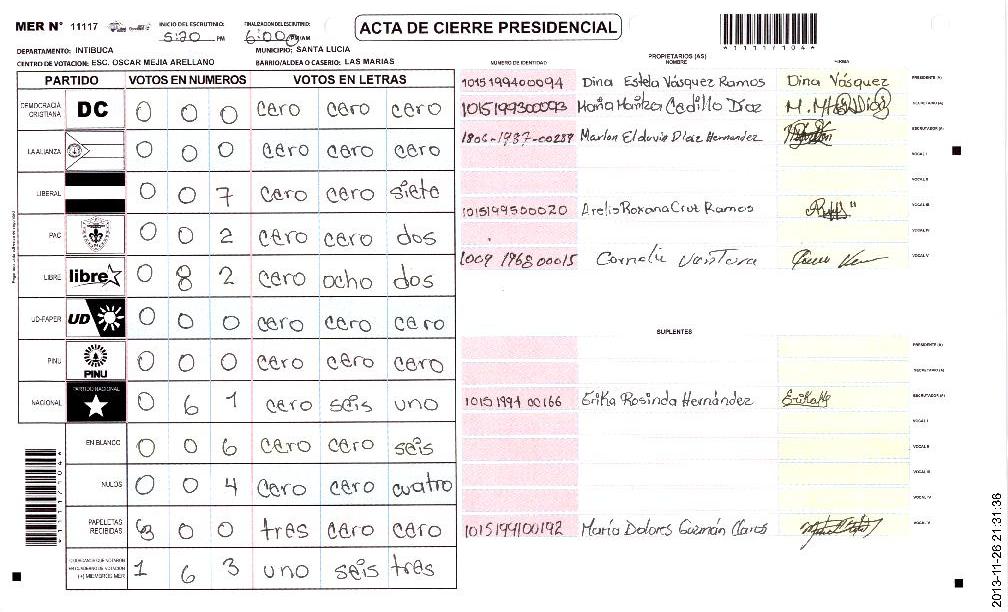 MER N° 11117
INICIO DEL ESCRUTINIO: 5:20 PM
FINALIZACION DEL ESCRUTINIO: 6:00 PM/AM
ACTA DE CIERRE PRESIDENCIAL
*111171041*
DEPARTAMENTO: INTIBUCA
MUNICIPIO: SANTA LUCIA
CENTRO DE VOTACION: ESC. OSCAR MEJIA ARELLANO
BARRIO/ALDEA O CASERIO: LAS MARIAS
PARTIDO VOTOS EN NUMEROS VOTOS EN LETRAS
DEMOCRACIA CRISTIANA DC 0 0 0 cero cero cero
LA ALIANZA 0 0 0 cero cero cero
LIBERAL 0 0 7 cero cero siete
PAC 0 0 2 cero cero dos
LIBRE libre 0 8 2 cero ocho dos
UD-FAPER UD 0 0 0 cero cero cero
PINU PINU 0 0 0 cero cero cero
NACIONAL PARTIDO NACIONAL 0 6 1 cero seis uno
EN BLANCO 0 0 6 cero cero seis
NULOS 0 0 4 cero cero cuatro
PAPELETAS RECIBIDAS 3 0 0 tres cero cero
CIUDADANOS QUE VOTARON EN CUADERNO DE VOTACION (+) MIEMBROS MER 1 6 3 uno seis tres
PROPIETARIOS (AS)
NUMERO DE IDENTIDAD NOMBRE FIRMA
1015199400094 Dina Estela Vásquez Ramos Dina Vásquez PRESIDENTE (A)
1015199300093 Maria Maritza Cedillo Díaz SECRETARIO (A)
1806-1987-00289 Marlon Elduvin Díaz Hernandez ESCRUTADOR (A)
VOCAL I
VOCAL II
1015199500020 Arelis Roxana Cruz Ramos VOCAL III
VOCAL IV
1009 1968 00015 Cornelio Ventura VOCAL V
SUPLENTES
PRESIDENTE (A)
SECRETARIO (A)
1015 1994 00166 Erika Rosinda Hernández ErikaH ESCRUTADOR (A)
VOCAL I
VOCAL II
VOCAL III
VOCAL IV
1015199100192 María Dolores Guzmán Claros VOCAL V
2013-11-26 21:31:36